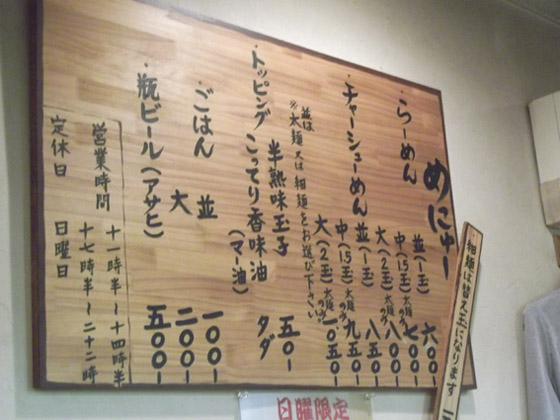 めにゅー
らーめん 並(一玉) 六〇〇-
中(1.5玉)太麺のみ 七〇〇-
大(2玉)太麺のみ 八〇〇-
チャーシューめん 並(一玉) 八五〇-
中(1.5玉)太麺のみ 九五〇-
大(2玉)太麺のみ 一〇五〇-
並は
※太麺又は細麺をお選び下さい
トッピング 半熟味玉子 五〇-
こってり香味油(マー油) タダ
ごはん 並 一〇〇-
大 二〇〇-
瓶ビール(アサヒ) 五〇〇-
営業時間 十一時半~十四時半
十七時半~二十二時
定休日 日曜日
細麺は替え玉になります
日曜限定